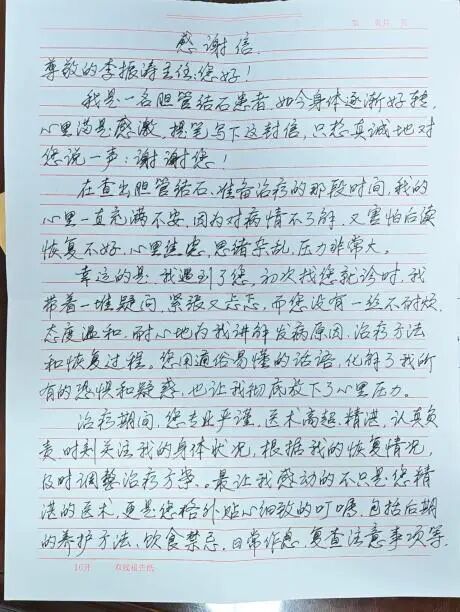 感谢信.
尊敬的李振涛主任:您好!
我是一名胆管结石患者,如今身体逐渐好转,
心里满是感激,提笔写下这封信,只想真诚地对
您说一声:谢谢您!
在查出胆管结石、准备治疗的那段时间,我的
心里一直充满不安,因为对病情不了解,又害怕后续
恢复不好,心里焦虑,思绪杂乱,压力非常大。
幸运的是,我遇到了您,初次找您就诊时,我
带着一堆疑问,紧张又忐忑,而您没有一丝不耐烦,
态度温和,耐心地为我讲解发病原因、治疗方法
和恢复过程。您用通俗易懂的话语,化解了我所
有的恐惧和疑惑,也让我彻底放下了心里压力。
治疗期间,您专业严谨,医术高超、精湛,认真负
责,时刻关注我的身体状况,根据我的恢复情况,
及时调整治疗方案。最让我感动的不只是您精
湛的医术,更是您格外贴心细致的叮嘱,包括后期
的养护方法、饮食禁忌,日常作息,复查注意事项等.
16开 双线报告纸